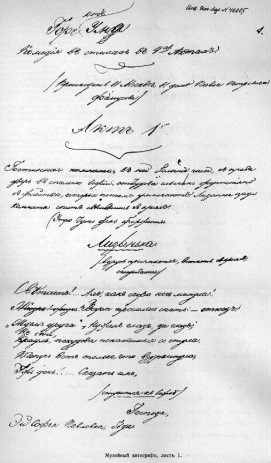 Горе Уму
отъ
1.
Комедия въ стихахъ въ 4хъ Актахъ
(Происходитъ въ Москвѣ, въ домѣ Павла
Фамусова)
Актъ 1й
Гостинная комната, въ ней часы, справа
дверь въ спальню Софіи, откудова слышно фортопіано
съ флейтою, которыя потомъ умолкаютъ. Лизанька среди
комнаты спитъ свѣсившись съ креселъ.
(Утро, чуть день брежжится)
Лизанька
(вдругъ просыпается, встаетъ съ креселъ,
оглядывается)
Свѣтаетъ!... Ахъ, какъ скоро ночь минула!
Вчера просилась спать — отказъ.
„Ждемъ друга“, Нуженъ глазъ, да глазъ,
Не спи, покудова не скатишься со стула.
Теперь вотъ только что вздремнула,
Ужъ день!... Сказать имъ,
(стучится къ Софіи)
Господа,
Эй Софья Павловна, бѣда.
Музейный автографъ, листъ 1.